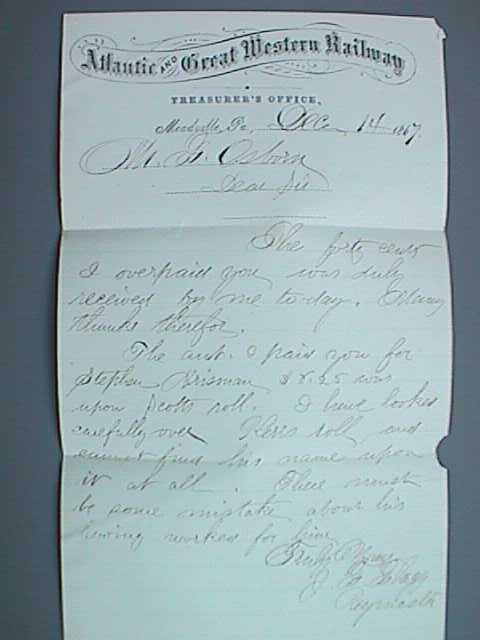 Atlantic AND Great Western Railway
TREASURER'S OFFICE,
Meadville, Pa, Dec 14 1867
Osborn
Dear Sir
The forty cents
I overpaid you was duly
received by me to-day. Many
thanks therefor.
The amt. I paid you for
Stephen $8.25 was
upon Scotts roll. I have looked
carefully over Kerrs roll and
cannot find his name upon
it at all. There must
be some mistake about his
having worked for him.
Truly Yours
Paymaster